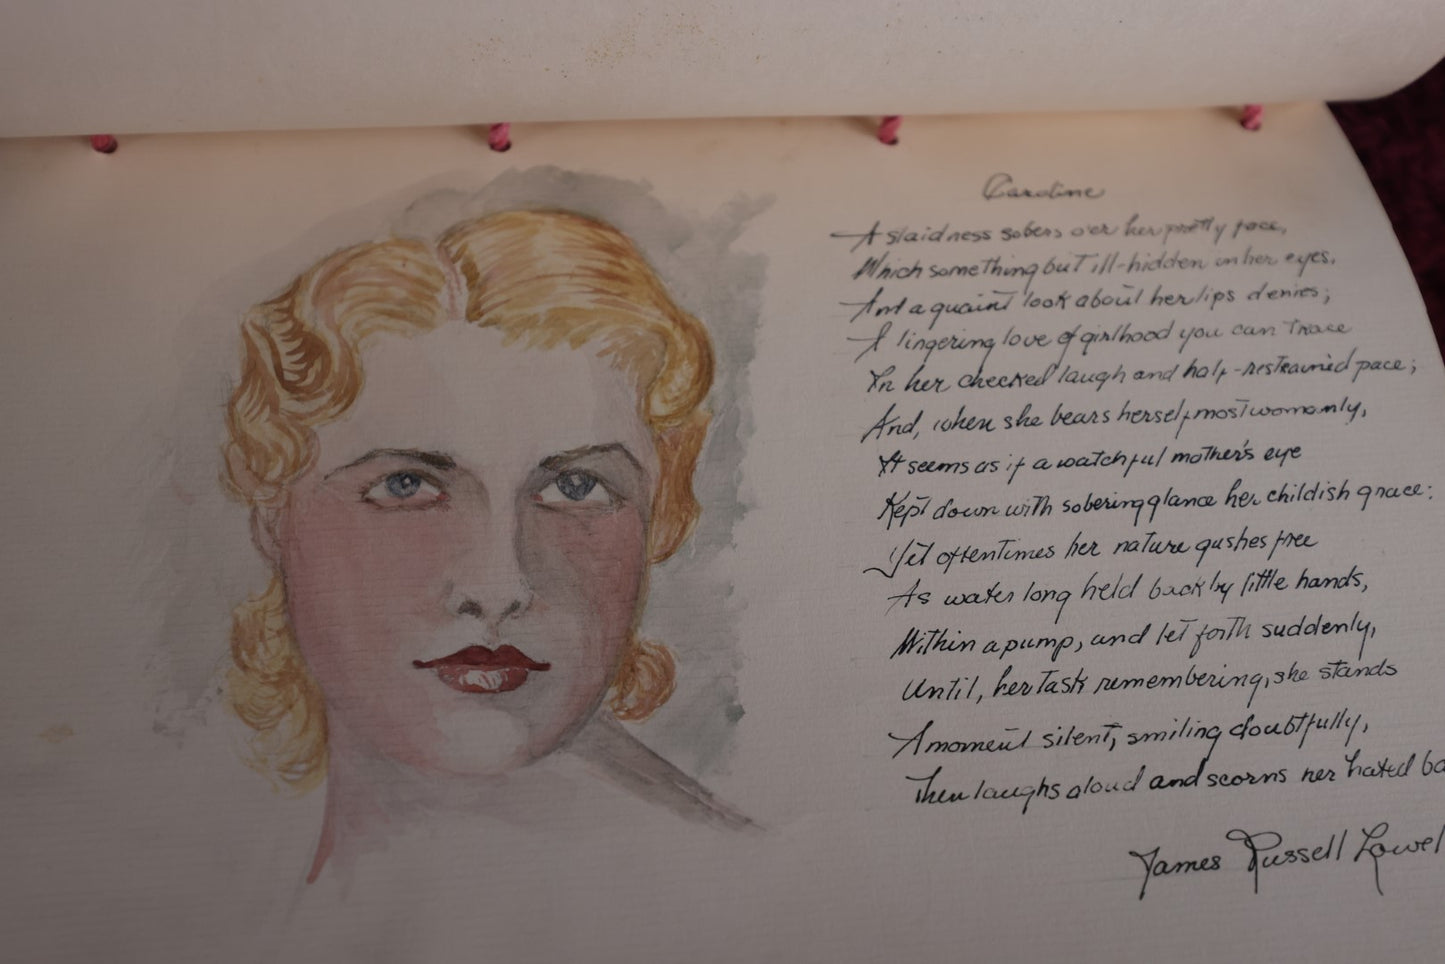 Caroline
A staidness sobers o'er her pretty face,
Which something but ill-hidden in her eyes,
And a quaint look about her lips denies;
A lingering love of girlhood you can trace
In her checked laugh and half-restrained pace;
And, when she bears herself most womanly,
It seems as if a watchful mother's eye
Kept down with sobering glance her childish grace:
Yet oftentimes her nature gushes free
As water long held back by little hands,
Within a pump, and let forth suddenly,
Until, her task remembering, she stands
A moment silent, smiling doubtfully,
Then laughs aloud and scorns her hated ba
James Russell Lowel